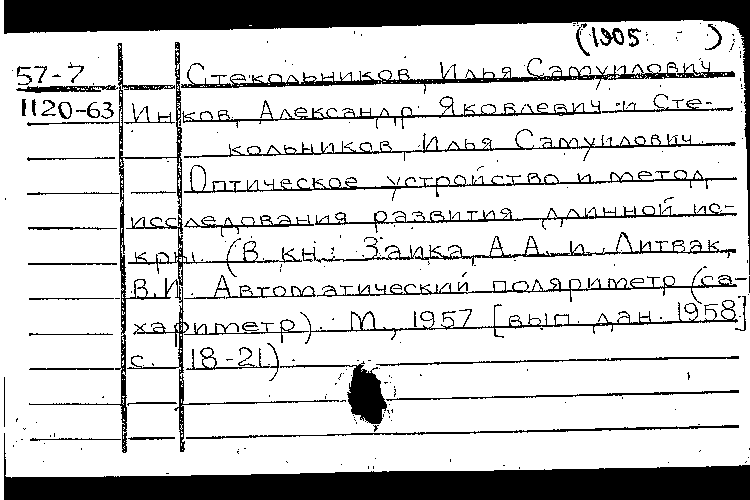 (1905 )
57-7 Стекольников, Илья Самуилович
1120-63 Инков, Александр Яковлевич и Сте-
кольников, Илья Самуилович.
Оптическое устройство и метод
исследования развития длинной ис-
кры. (В кн.: Заика, А.А. и Литвак,
В.И. Автоматический поляриметр (са-
хариметр). М., 1957 [вып. дан. 1958]
с. 18-21).